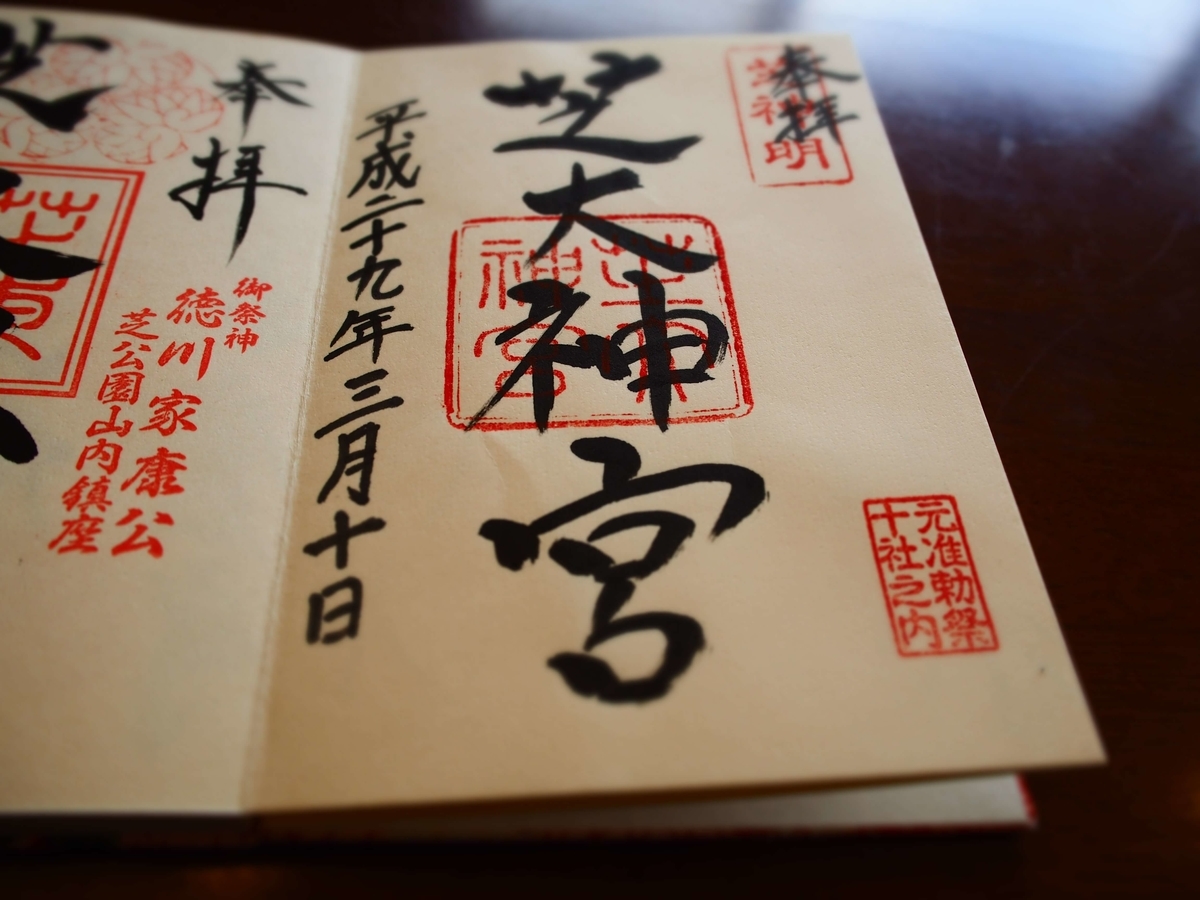 奉拝
芝神明
芝大神宮
芝東神宮
元准勅祭
十社之内
平成二十九年三月十日
奉拝
御祭神
徳川家康公
芝公園山内鎮座
芝